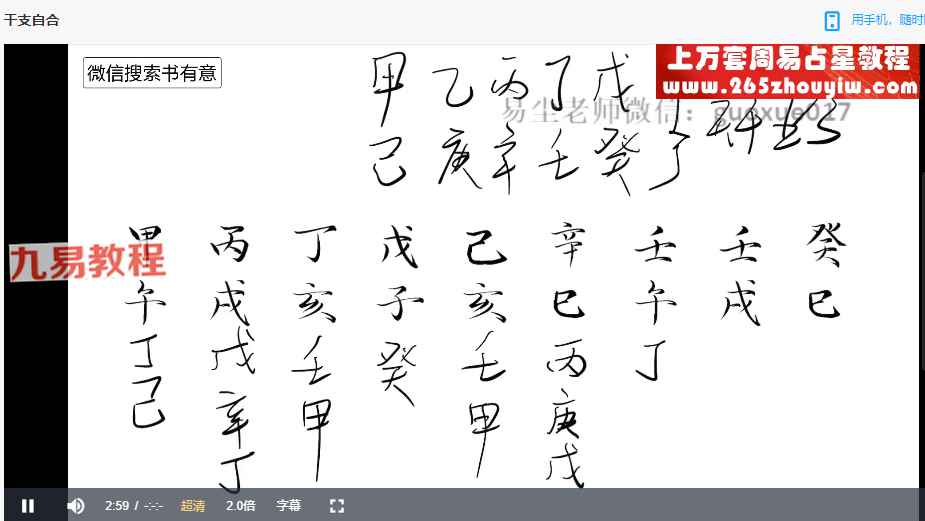 干支自合
用手机，随时
微信搜索书有意
上万套周易占星教程
www.265zhouyiw.com
易尘老师微信：guoxue017
甲 乙 丙 丁 戊
己 庚 辛 壬 癸
九易教程
甲 丙 丁 戊 己 辛 壬 壬 癸
午 戌 亥 子 亥 巳 午 戌 巳
丁 戊 壬 癸 壬 丙 丁
己 辛 甲 甲 庚
丁 戊
2:59 / -:-:-
超清
2.0倍
字幕